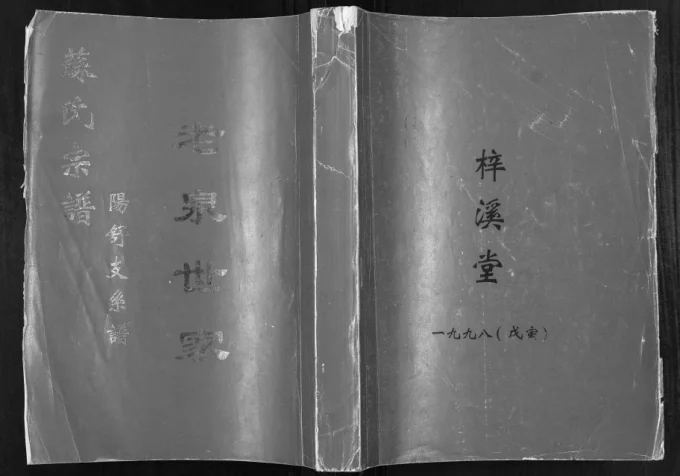 蘇氏宗譜
陽舒支系譜
老泉世界
梓溪堂
一九九八(戊寅)